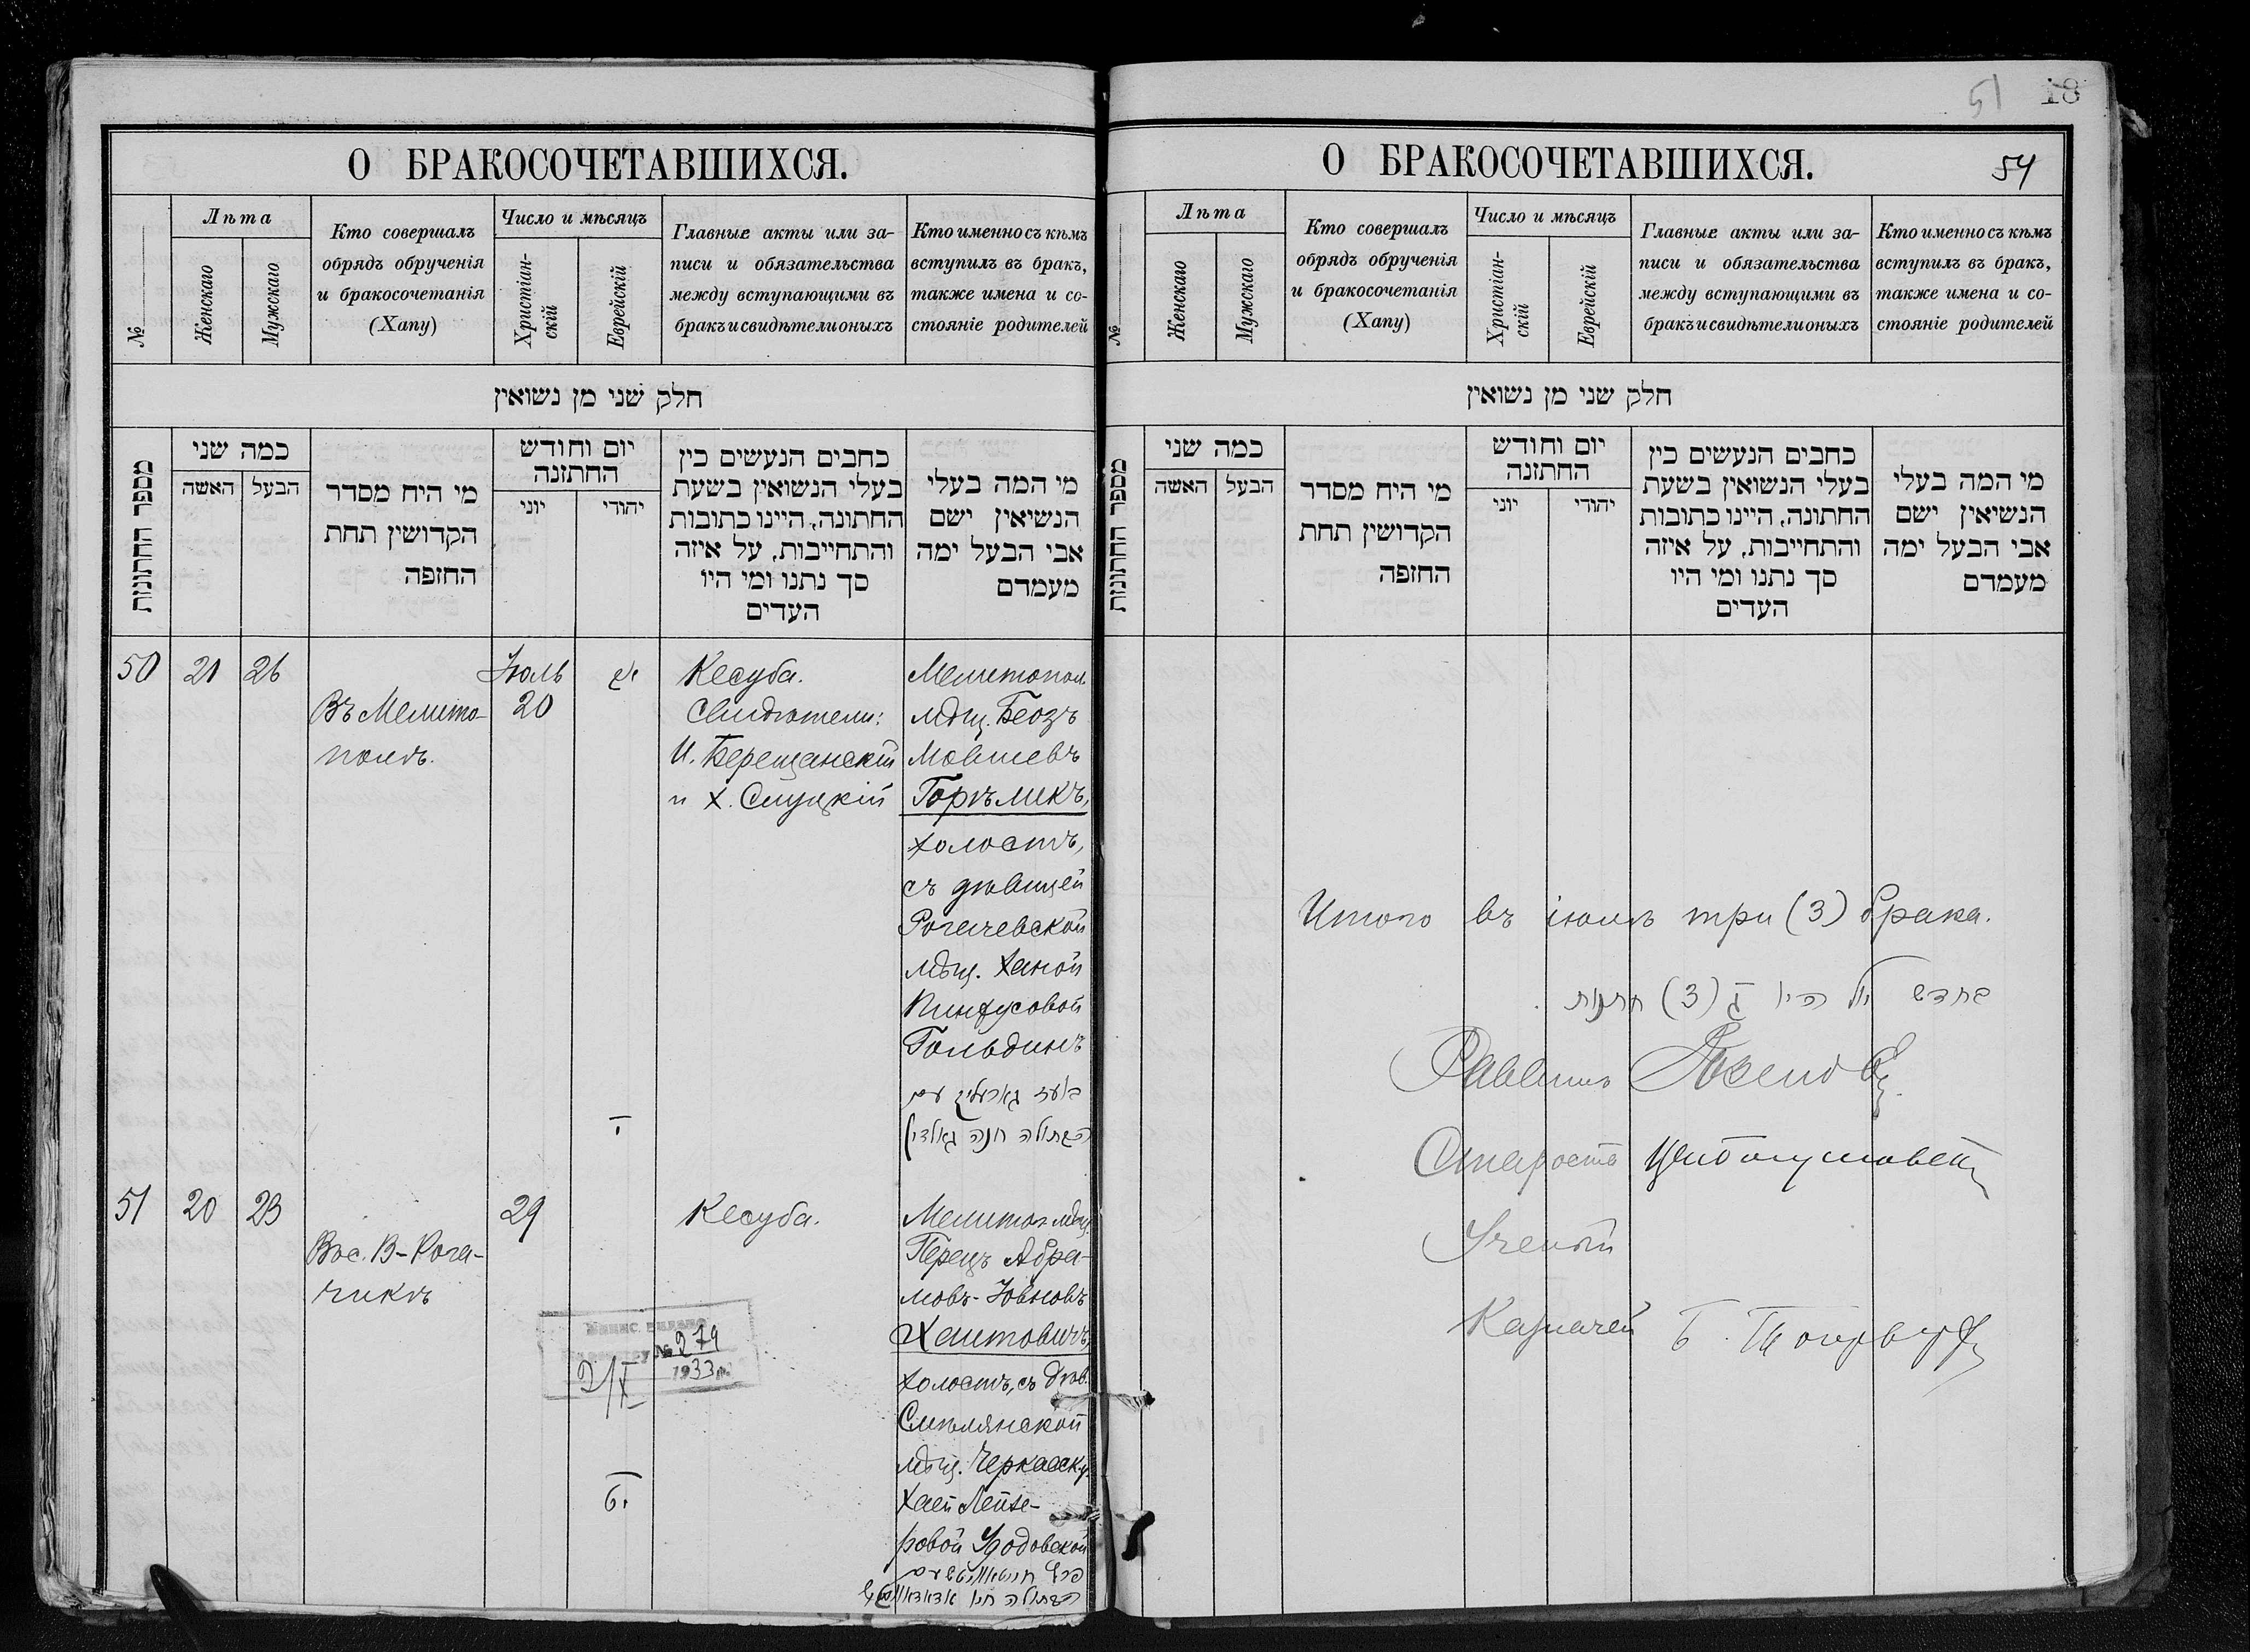 О БРАКОСОЧЕТАВШИХСЯ.
№
Лѣта
Женскаго
Мужскаго
Кто совершалъ
обрядъ обрученія
и бракосочетанія
(Хапу)
Число и мѣсяцъ
Христіан-
скій
Еврейскій
Главные акты или за-
писи и обязательства
между вступающими въ
бракъ и свидѣтели оныхъ
Кто именно съ кѣмъ
вступилъ въ бракъ,
также имена и со-
стояніе родителей
חלק שני מן נשואין
מספר החתונות
כמה שני
האשה
הבעל
מי היח מסדר
הקדושין תחת
החזפה
יום וחודש
החתזנה
יוני
יהודי
כחבים הנעשים כין
בעלי הנשואין בשעת
החתונה, היינו כתובות
והתחייבות, על איזה
סך נתנו ומי היו
העדים
מי המה בעלי
הנשיאין ישם
אבי הבעל ימה
מעמדם
50
21
26
Въ Мелито-
полѣ.
Іюль
20
Кесуба.
Свидѣтели:
И. Берещанскій
и Х. Слуцкій
Мелитопол.
мѣщ. Беозъ
Мовшевъ
Горѣликъ,
холостъ,
съ дѣвицей
Рогачевской
мѣщ. Ханой
Пинхусовой
Гольдинъ
באעז גארעליק עם
הבתולה חנה גאלדין
51
20
23
Въ с. В-Рога-
чикѣ
29
Кесуба.
Мелитоп. мѣщ.
Перецъ Абра-
мовъ-Іовновъ
Хаитовичъ,
холостъ, съ дѣв.
Смѣлянской
мѣщ. Черкасск. у.
Хаей Лейзе-
ровой Удодовской
№ 279
2/X 1933 г.
51
18
О БРАКОСОЧЕТАВШИХСЯ.
54
№
Лѣта
Женскаго
Мужскаго
Кто совершалъ
обрядъ обрученія
и бракосочетанія
(Хапу)
Число и мѣсяцъ
Христіан-
скій
Еврейскій
Главные акты или за-
писи и обязательства
между вступающими въ
бракъ и свидѣтели оныхъ
Кто именно съ кѣмъ
вступилъ въ бракъ,
также имена и со-
стояніе родителей
חלק שני מן נשואין
מספר החתונות
כמה שני
האשה
הבעל
מי היח מסדר
הקדושין תחת
החזפה
יום וחודש
החתזנה
יוני
יהודי
כחבים הנעשים כין
בעלי הנשואין בשעת
החתונה, היינו כתובות
והתחייבות, על איזה
סך נתנו ומי היו
העדים
מי המה בעלי
הנשיאין ישם
אבי הבעל ימה
מעמדם
Итого въ іюлѣ три (3) брака.
בחדש יול היו ג (3) חתנות
Раввинъ
Староста
Ученый
Казначей